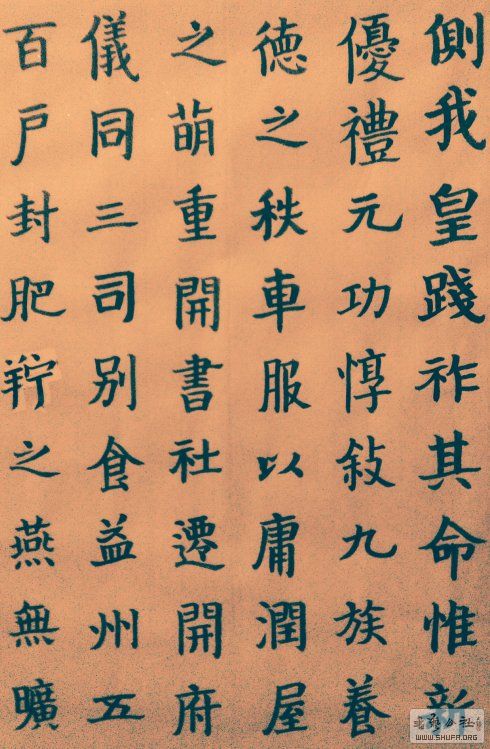 側我皇踐祚其命惟新
優禮元功惇敍九族養
徳之秩車服以庸潤屋
之萌重開書社遷開府
儀同三司别食益州五
百戶封肥羜之燕無曠
WWW.SHUFA.ORG